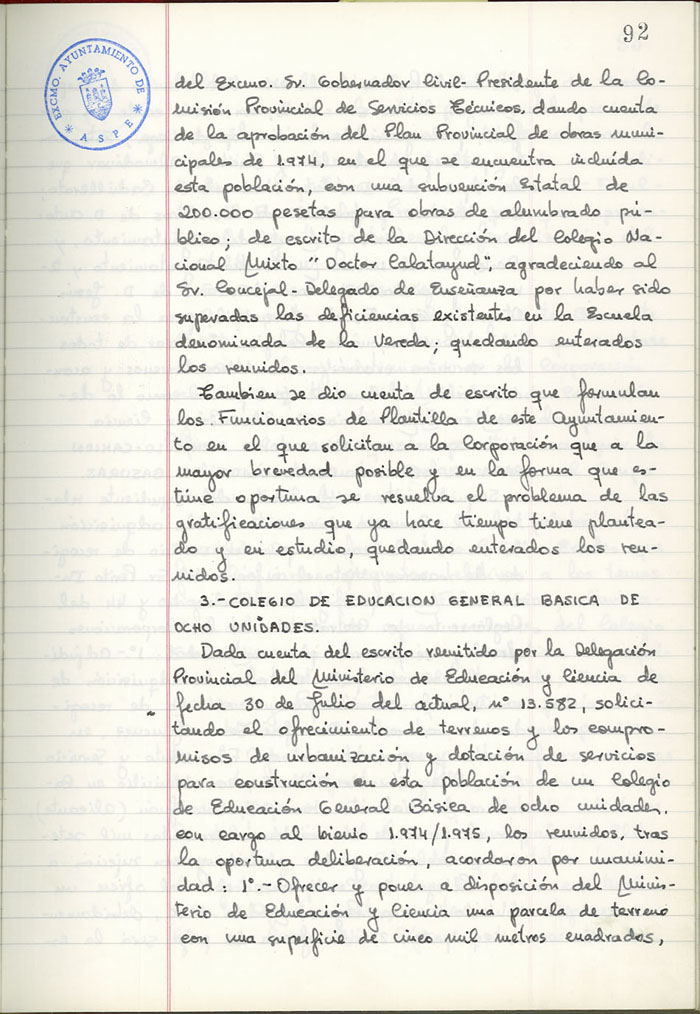 92
EXCMO. AYUNTAMIENTO DE
* ASPE *
del Excmo. Sr. Gobernador Civil-Presidente de la Co-
misión Provincial de Servicios Técnicos, dando cuenta
de la aprobación del Plan Provincial de obras muni-
cipales de 1.974, en el que se encuentra incluída
esta población, con una subvención Estatal de
200.000 pesetas para obras de alumbrado pú-
blico; de escrito de la Dirección del Colegio Na-
cional Mixto "Doctor Calatayud", agradeciendo al
Sr. Concejal-Delegado de Enseñanza por haber sido
superadas las deficiencias existentes en la Escuela
denominada de la Vereda; quedando enterados
los reunidos.
Tambien se dio cuenta de escrito que formulan
los Funcionarios de Plantilla de este Ayuntamien-
to en el que solicitan a la Corporación que a la
mayor brevedad posible y en la forma que es-
time oportuna se resuelva el problema de las
gratificaciones que ya hace tiempo tiene plantea-
do y en estudio, quedando enterados los reu-
nidos.
3.- COLEGIO DE EDUCACION GENERAL BASICA DE
OCHO UNIDADES.
Dada cuenta del escrito remitido por la Delegación
Provincial del Ministerio de Educación y Ciencia de
fecha 30 de Julio del actual, nº 13.582, solici-
tando el ofrecimiento de terrenos y los compro-
misos de urbanización y dotación de servicios
para construcción en esta población de un Colegio
de Educación General Básica de ocho unidades,
con cargo al bienio 1.974/1.975, los reunidos, tras
la oportuna deliberación, acordaron por unanimi-
dad: 1º.- Ofrecer y poner a disposición del Minis-
terio de Educación y Ciencia una parcela de terreno
con una superficie de cinco mil metros cuadrados,